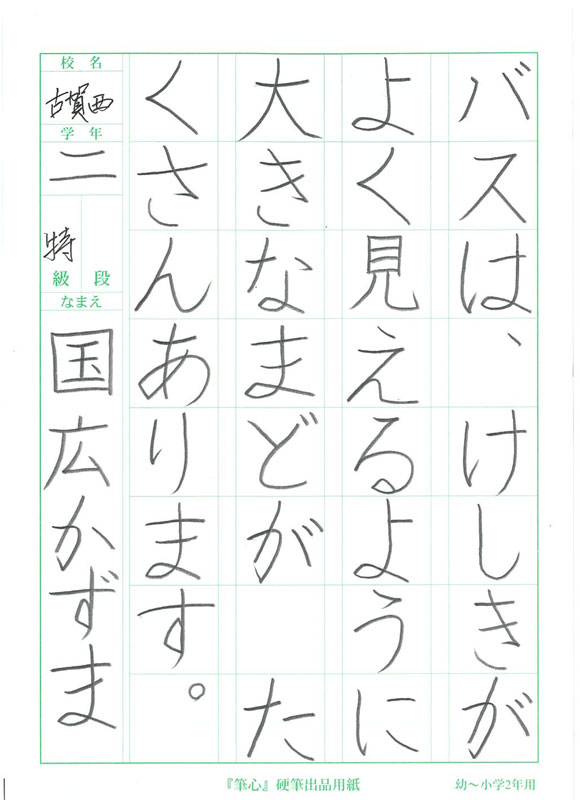 バスは、けしきが
よく見えるように
大きなまどが　た
くさんあります。
校名
古賀西
学年
二
特
級段
なまえ
国広かずま
『筆心』硬筆出品用紙
幼〜小学2年用